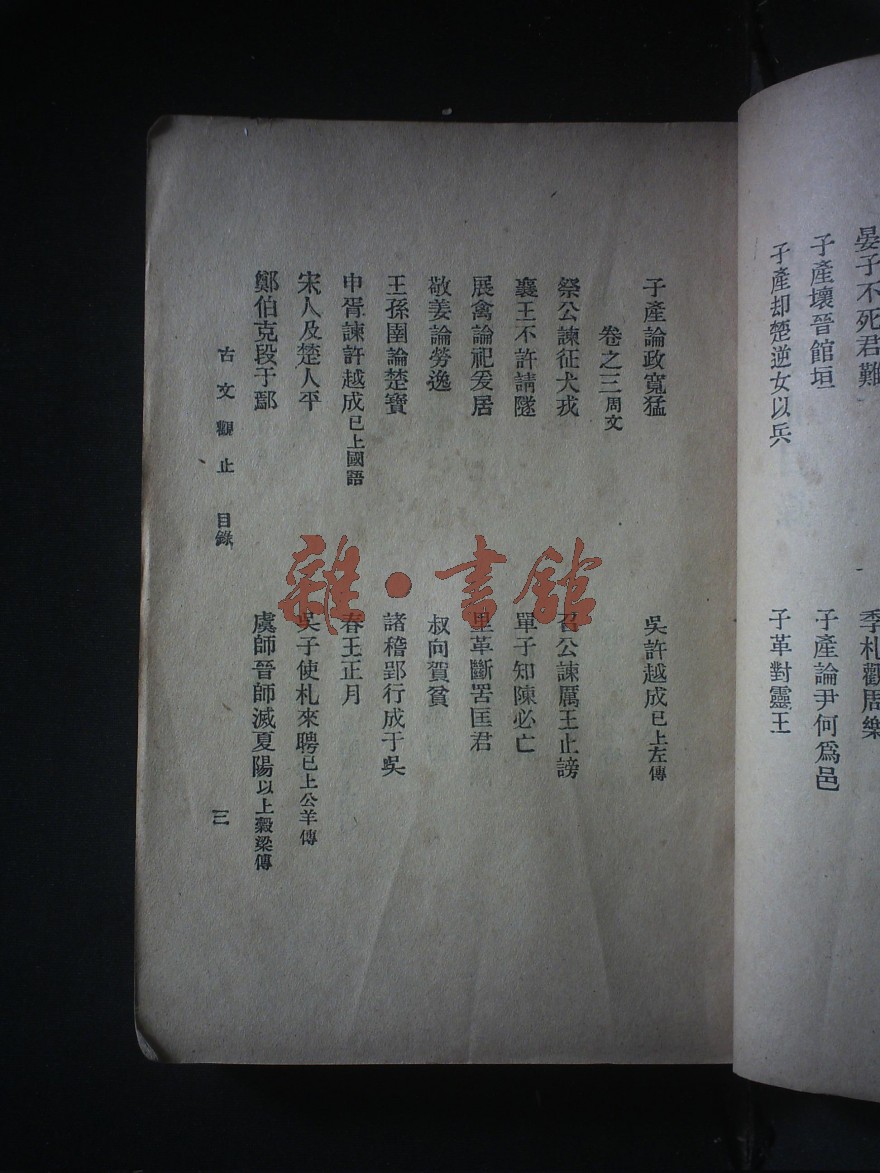 晏子不死君難
季札觀周樂
子產壞晉館垣
子產論尹何爲邑
子產却楚逆女以兵
子革對靈王
子產論政寬猛
吳許越成已上左傳
卷之三周文
祭公諫征犬戎
召公諫厲王止謗
襄王不許請隧
單子知陳必亡
展禽論祀爰居
里革斷罟匡君
敬姜論勞逸
叔向賀貧
王孫圉論楚寶
諸稽郢行成于吳
申胥諫許越成已上國語
春王正月
宋人及楚人平
吳子使札來聘已上公羊傳
鄭伯克段于鄢
虞師晉師滅夏陽以上糓梁傳
古文觀止 目錄
三
雜·書館